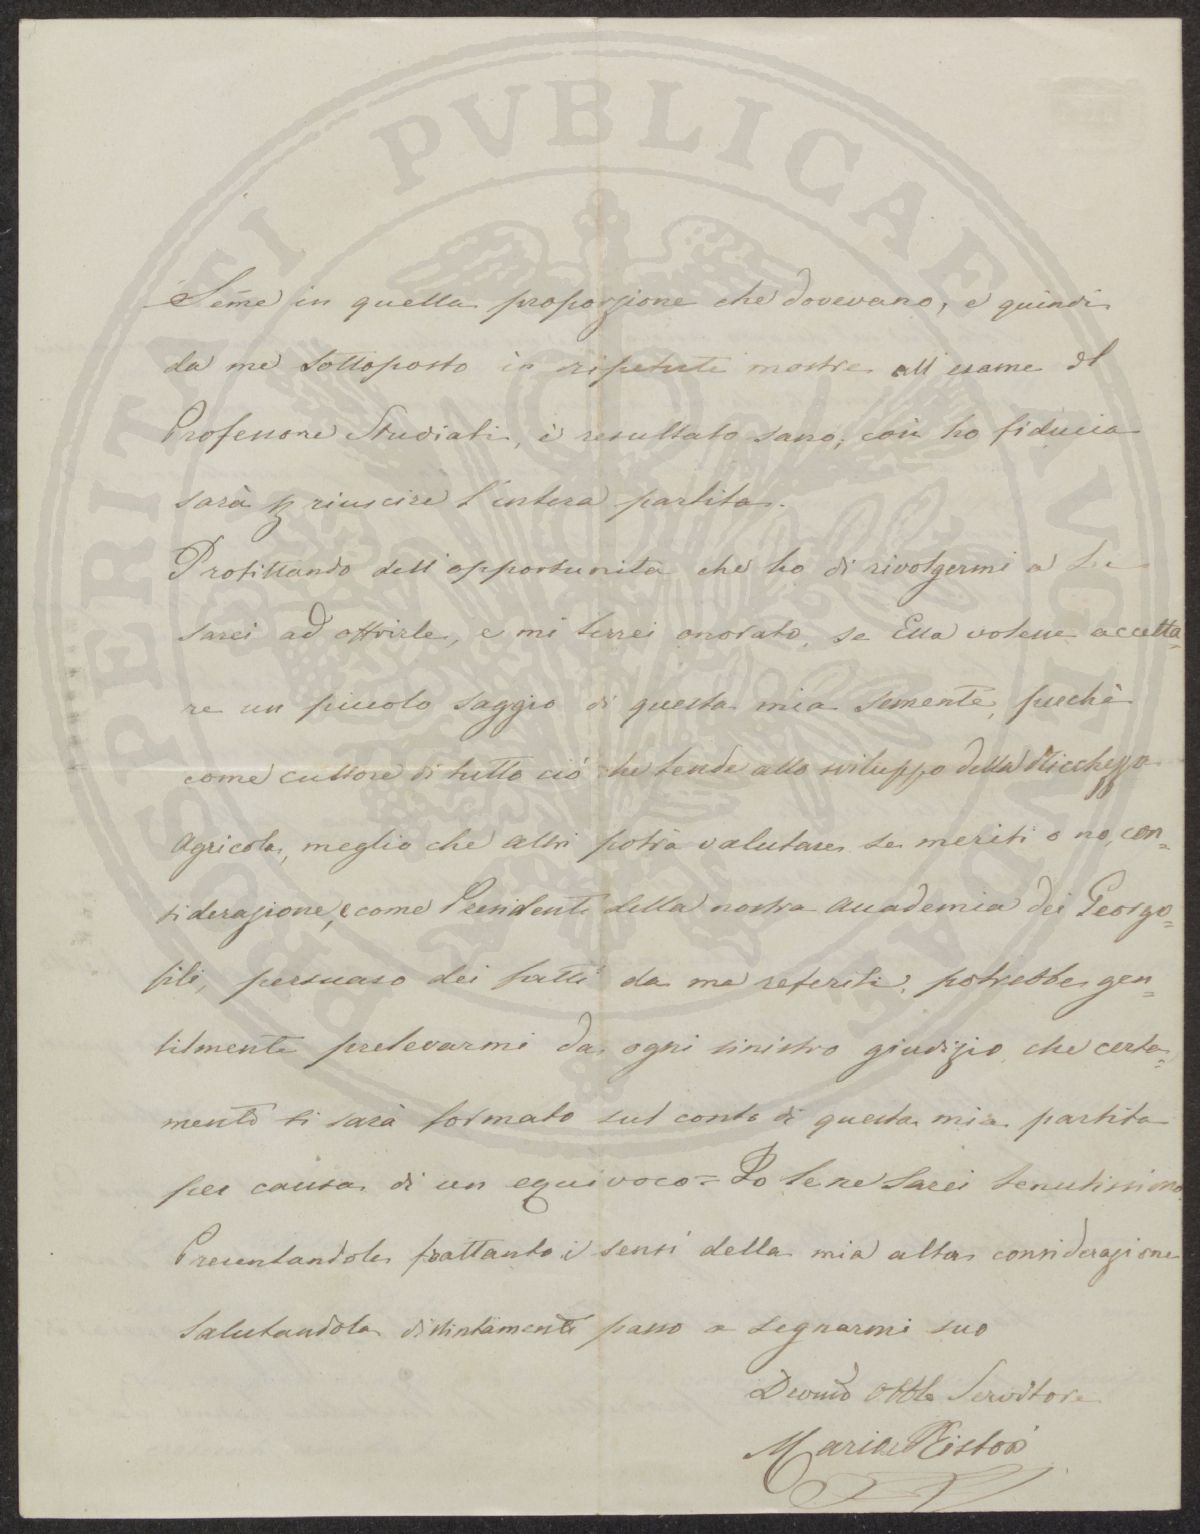 PROSPERITATI PVBLICAE AVGENDAE
Seme in quella proporzione che dovevano, e quindi
da me sottoposto in ripetute mostre all'esame del
Professore Studiati, è resultato sano; così ho fiducia
sarà p riuscire l'intera partita.
Profittando dell'opportunità che ho di rivolgermi a Lei
sarei ad offrirle, e mi terrei onorato, se Ella volesse accetta=
re un piccolo saggio di questa mia semente, perchè
come cultore di tutto ciò che tende allo sviluppo della Ricchezza
Agricola, meglio che altri potrà valutare se meriti o no, con=
siderazione, e come Presidente della nostra Accademia dei Georgo=
fili, persuaso dei fatti da me referiti, potrebbe gen=
tilmente prelevarmi da ogni sinistro giudizio, che certa=
mente si sarà formato sul conto di questa mia partita
per causa di un equivoco = Io le ne sarei tenutissimo.
Presentandole frattanto i sensi della mia alta considerazione
salutandola distintamente passo a segnarmi suo
Devmo Obblo Servitore
Mario Ristori